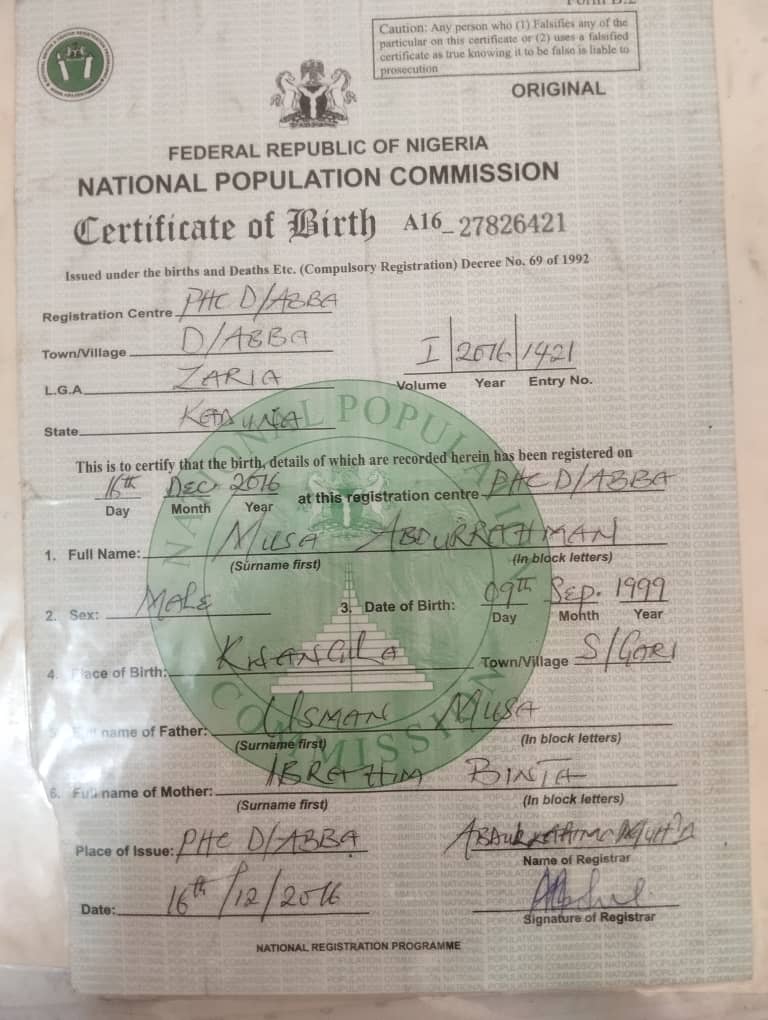 Caution: Any person who (1) Falsifies any of the
particular on this certificate or (2) uses a falsified
certificate as true knowing it to be false is liable to
prosecution
ORIGINAL
FEDERAL REPUBLIC OF NIGERIA
NATIONAL POPULATION COMMISSION
Certificate of Birth A16_27826421
Issued under the births and Deaths Etc. (Compulsory Registration) Decree No. 69 of 1992
Registration Centre PHC D/ABBA
Town/Village D/ABBA
I 2016 1421
Volume Year Entry No.
L.G.A ZARIA
State KADUNA
This is to certify that the birth, details of which are recorded herein has been registered on
16th Dec. 2016 at this registration centre PHC D/ABBA
Day Month Year
1. Full Name: MUSA ABDURRAHMAN
(Surname first) (In block letters)
2. Sex: MALE 3. Date of Birth: 09th Sep. 1999
Day Month Year
4. Place of Birth: Town/Village S/GARI
5. Full name of Father: USMAN MUSA
(Surname first) (In block letters)
6. Full name of Mother: IBRAHIM BINTA
(Surname first) (In block letters)
Place of Issue: PHC D/ABBA
Name of Registrar
Date: 16th/12/2016
Signature of Registrar
NATIONAL REGISTRATION PROGRAMME
NATIONAL POPULATION COMMISSION